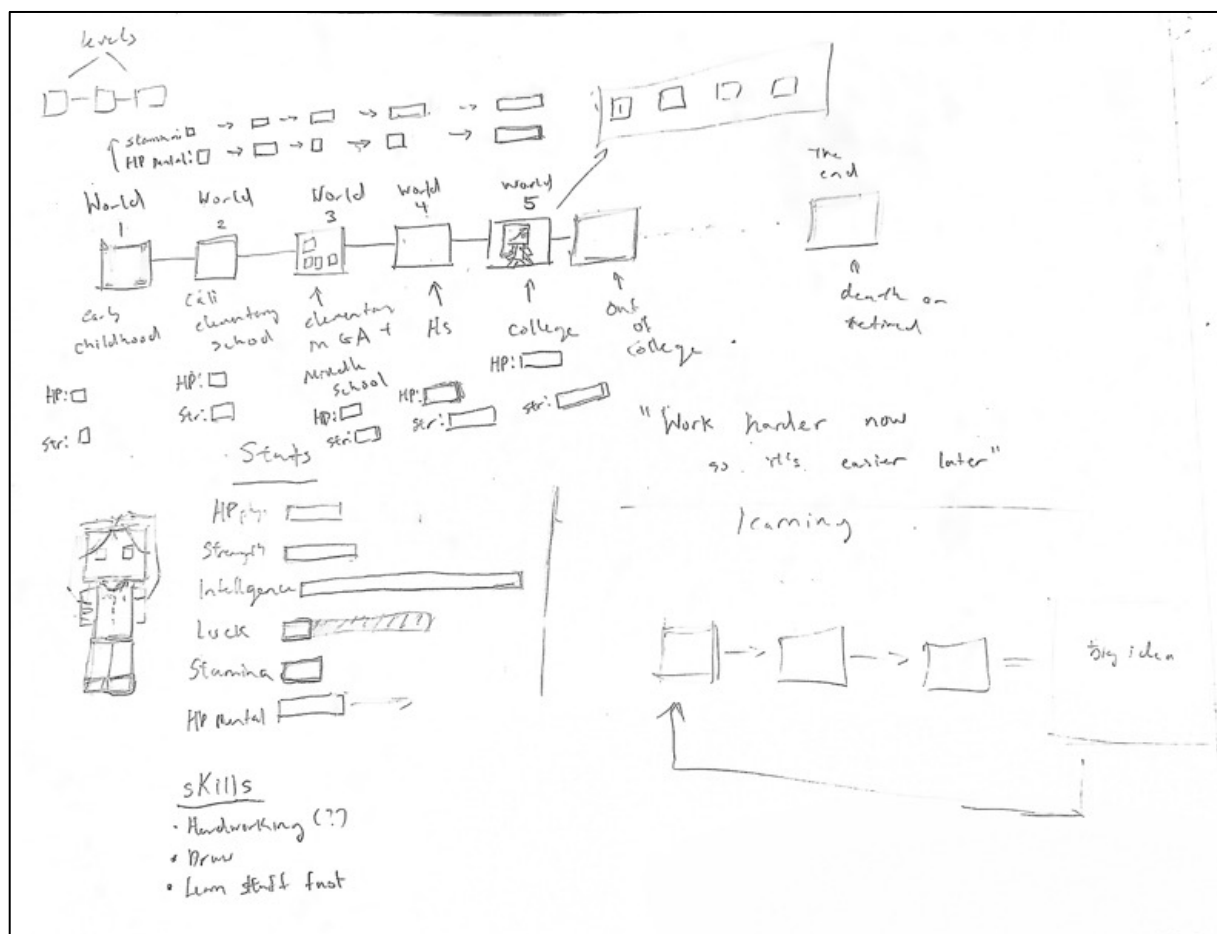 levels
Stamina:
HP mental:
World
1
World
2
World
3
World
4
World
5
1
The
end
early
childhood
Cali
elementary
school
elementary
in GA +
Middle
school
HS
college
out
of
college
death or
retired
HP:
Str:
HP:
Str:
HP:
Str:
HP:
Str:
HP:
Str:
"Work harder now
so it's easier later"
Stats
HP phys
Strength
Intelligence
Luck
Stamina
HP mental
learning
big idea
Skills
• Hardworking (?)
• Draw
• Learn stuff fast